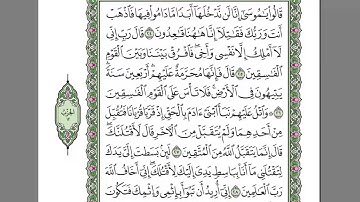 قَالُوا۟ يَـٰمُوسَىٰٓ إِنَّا لَن نَّدْخُلَهَآ أَبَدًا مَّا دَامُوا۟ فِيهَا فَٱذْهَبْ
أَنتَ وَرَبُّكَ فَقَـٰتِلَآ إِنَّا هَـٰهُنَا قَـٰعِدُونَ ۝٢٤ قَالَ رَبِّ إِنِّى
لَآ أَمْلِكُ إِلَّا نَفْسِى وَأَخِى فَٱفْرُقْ بَيْنَنَا وَبَيْنَ ٱلْقَوْمِ
ٱلْفَـٰسِقِينَ ۝٢٥ قَالَ فَإِنَّهَا مُحَرَّمَةٌ عَلَيْهِمْ أَرْبَعِينَ سَنَةً
يَتِيهُونَ فِى ٱلْأَرْضِ فَلَا تَأْسَ عَلَى ٱلْقَوْمِ ٱلْفَـٰسِقِينَ
۝٢٦ وَٱتْلُ عَلَيْهِمْ نَبَأَ ٱبْنَىْ ءَادَمَ بِٱلْحَقِّ إِذْ قَرَّبَا قُرْبَانًا فَتُقُبِّلَ
مِنْ أَحَدِهِمَا وَلَمْ يُتَقَبَّلْ مِنَ ٱلْـَٔاخَرِ قَالَ لَأَقْتُلَنَّكَ
قَالَ إِنَّمَا يَتَقَبَّلُ ٱللَّهُ مِنَ ٱلْمُتَّقِينَ ۝٢٧ لَئِنۢ بَسَطتَ إِلَىَّ يَدَكَ
لِتَقْتُلَنِى مَآ أَنَا۠ بِبَاسِطٍ يَدِىَ إِلَيْكَ لِأَقْتُلَكَ إِنِّىٓ أَخَافُ ٱللَّهَ
رَبَّ ٱلْعَـٰلَمِينَ ۝٢٨ إِنِّىٓ أُرِيدُ أَن تَبُوٓأَ بِإِثْمِى وَإِثْمِكَ فَتَكُونَ